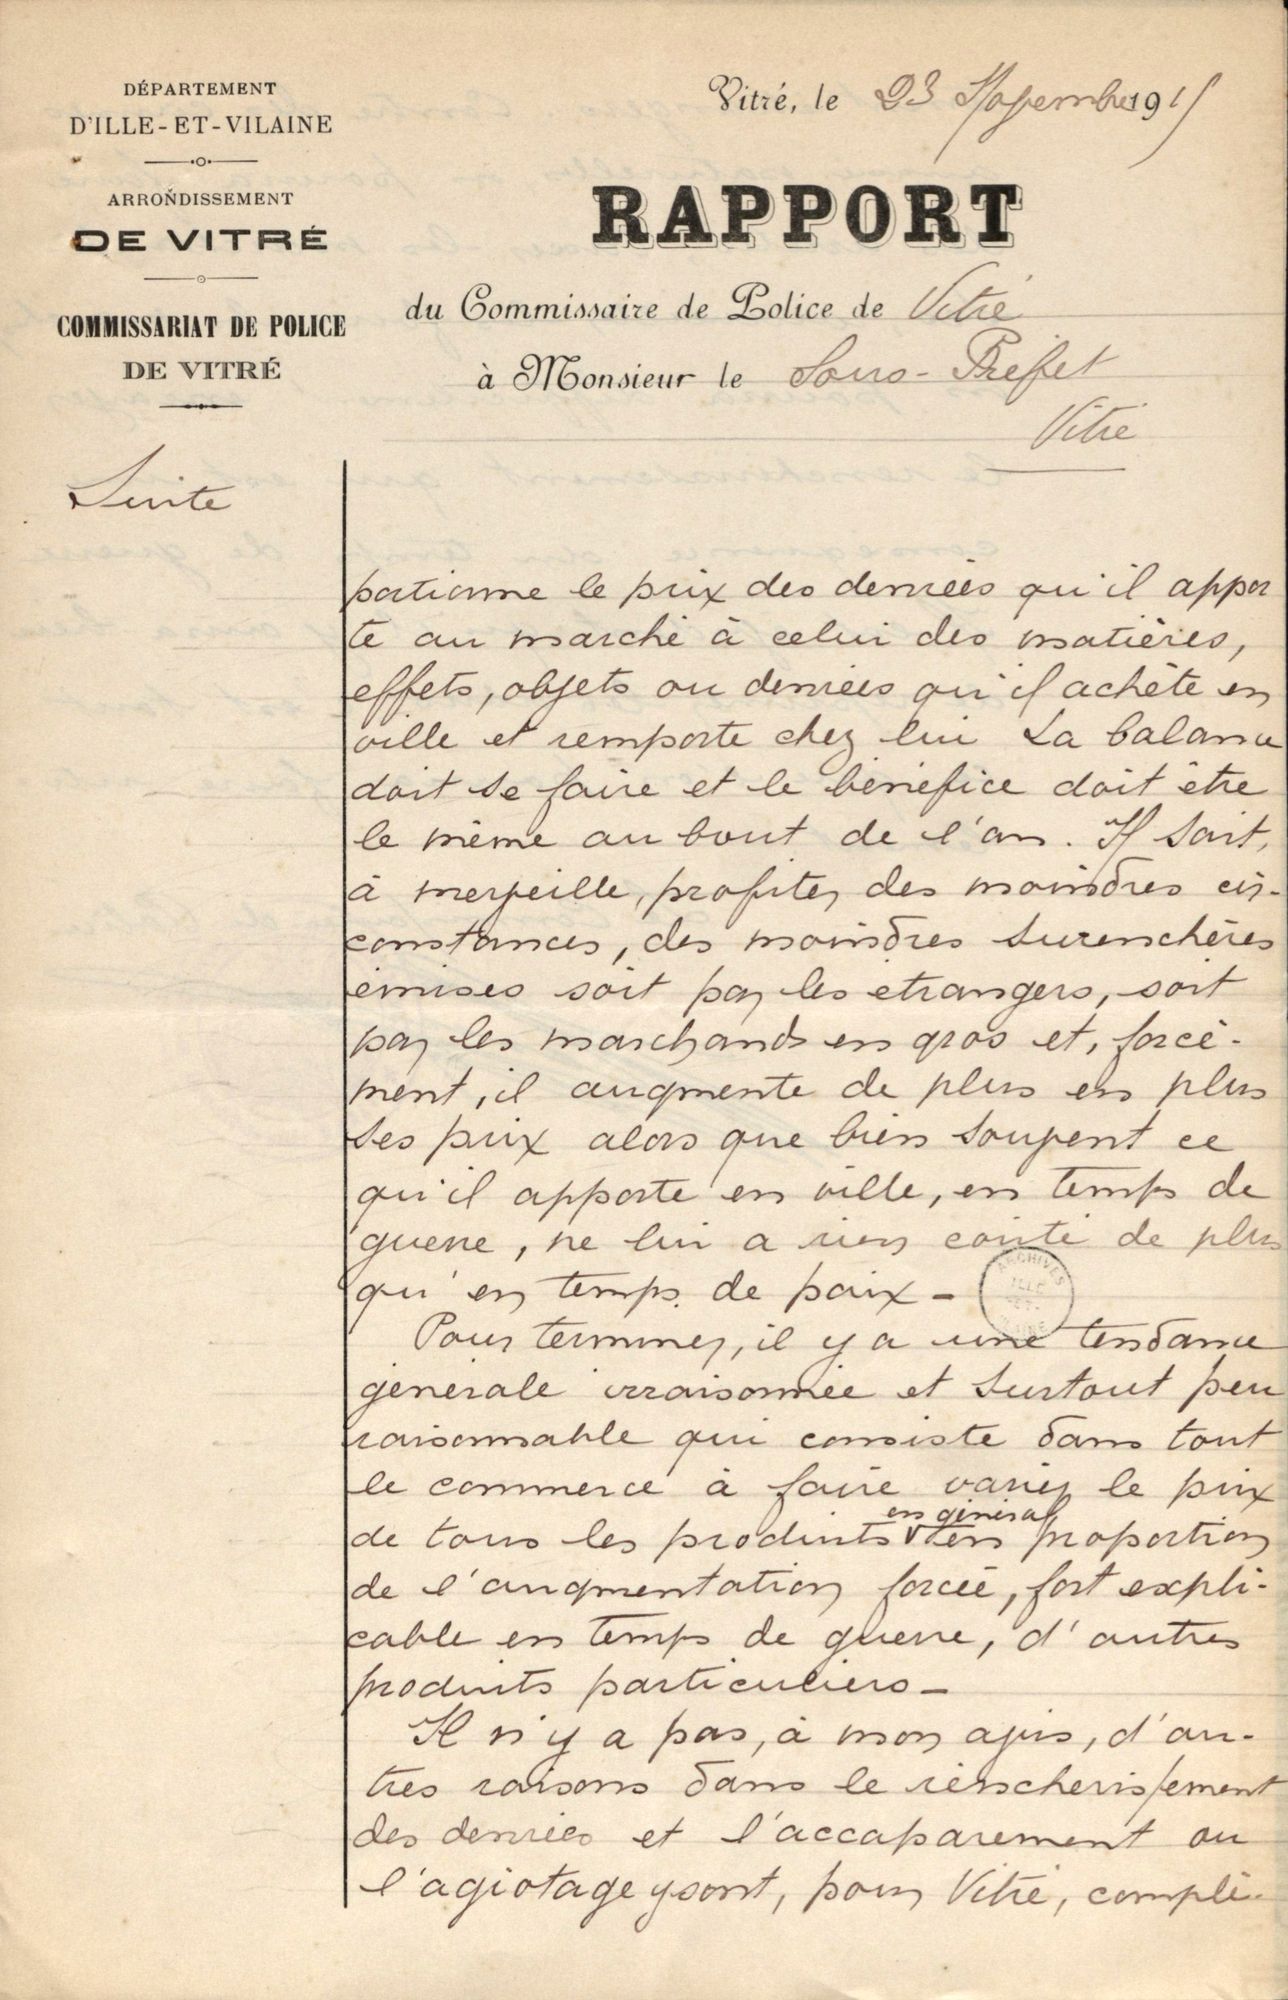 DÉPARTEMENT
D'ILLE-ET-VILAINE
ARRONDISSEMENT
DE VITRÉ
COMMISSARIAT DE POLICE
DE VITRÉ
Suite
Vitré, le 23 Novembre 1915
RAPPORT
du Commissaire de Police de Vitré
à Monsieur le Sous-Préfet
Vitré
portionne le prix des denrées qu'il appor
te au marché à celui des matières,
effets, objets ou denrées qu'il achète en
ville et remporte chez lui La balance
doit se faire et le bénéfice doit être
le même au bout de l'an. Il sait,
à merveille, profiter des moindres cir-
constances, des moindres surenchères
émises soit par les étrangers, soit
par les marchands en gros et, forcé-
ment, il augmente de plus en plus
ses prix alors que bien souvent ce
qu'il apporte en ville, en temps de
guerre, ne lui a rien coûté de plus
qu'en temps de paix -
ARCHIVES
Pour terminer, il y a une tendance
générale irraisonnée et surtout peu
raisonnable qui consiste dans tout
le commerce à faire varier le prix
de tous les produits en général en proportion
de l'augmentation forcée, fort expli-
cable en temps de guerre, d'autres
produits particuliers -
Il n'y a pas, à mon avis, d'au-
tres raisons dans le renchérissement
des denrées et l'accaparement ou
l'agiotage y sont, pour Vitré, complè-